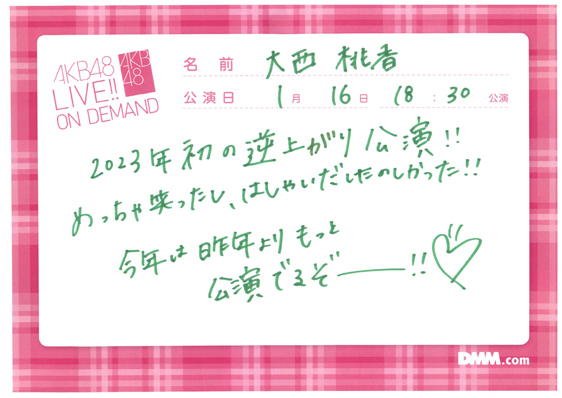 AKB48
LIVE!!
ON DEMAND
AKB
48
名前 大西 桃香
公演日 1月 16日 18:30 公演
2023年初の逆上がり公演!!
めっちゃ笑ったし、はしゃいだしたのしかった!!
今年は昨年よりもっと
公演でるぞー!!
DMM.com